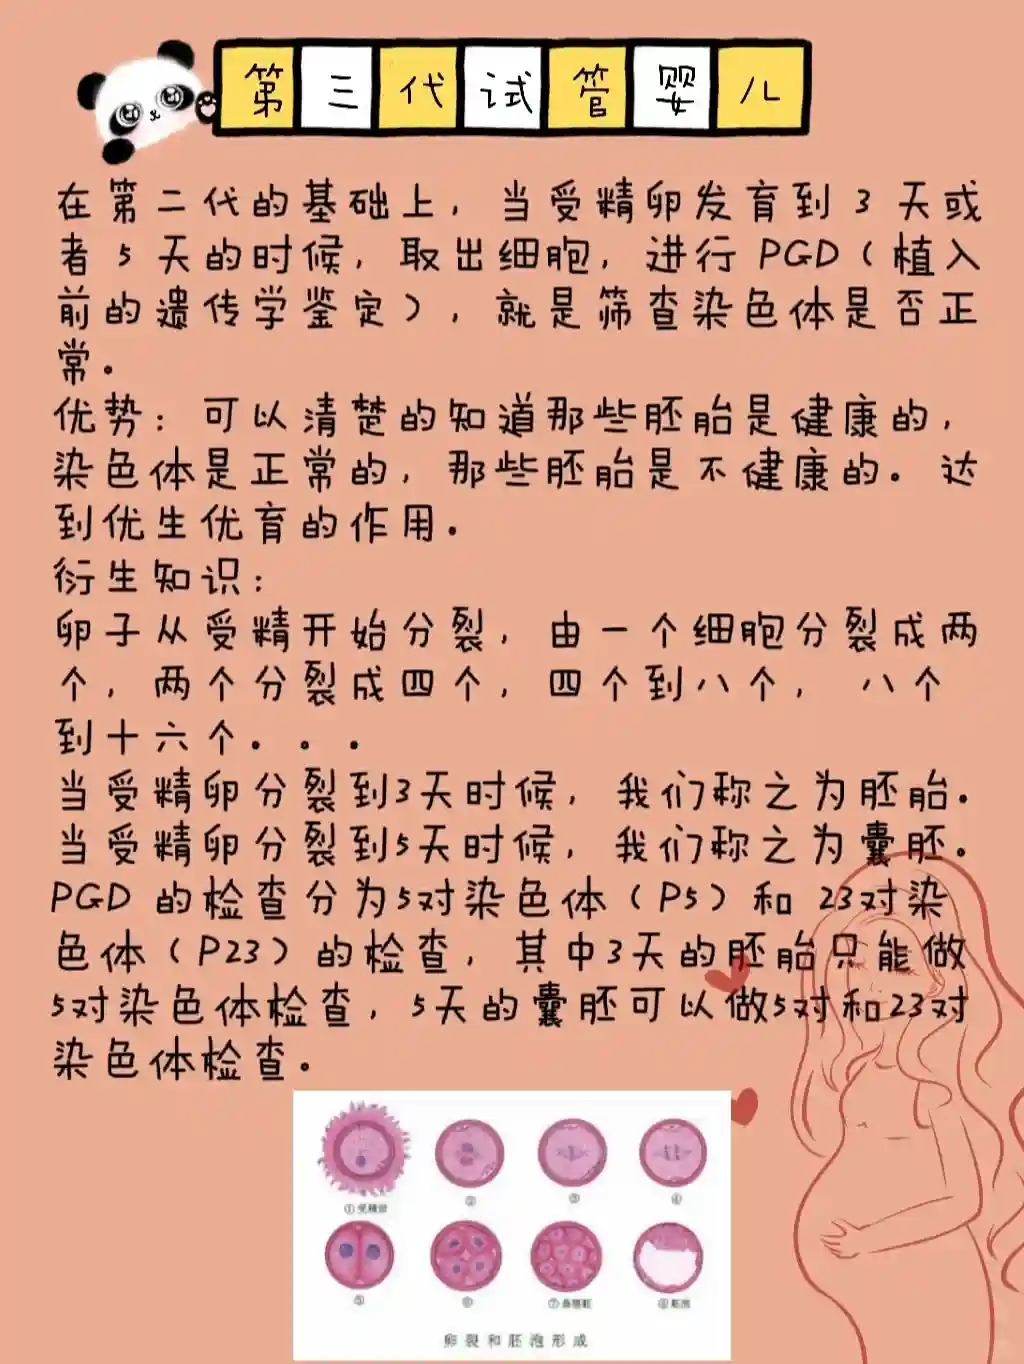 第三代试管婴儿
在第二代的基础上，当受精卵发育到 3 天或
者 5 天的时候，取出细胞，进行 PGD（植入
前的遗传学鉴定），就是筛查染色体是否正
常。
优势：可以清楚的知道那些胚胎是健康的，
染色体是正常的，那些胚胎是不健康的。达
到优生优育的作用.
衍生知识：
卵子从受精开始分裂，由一个细胞分裂成两
个，两个分裂成四个，四个到八个， 八个
到十六个. . .
当受精卵分裂到3天时候，我们称之为胚胎.
当受精卵分裂到5天时候，我们称之为囊胚。
PGD 的检查分为5对染色体（P5）和 23对染
色体（P23）的检查，其中3天的胚胎只能做
5对染色体检查，5天的囊胚可以做5对和23对
染色体检查。
①受精卵 ② ③ ④
⑤ ⑥ ⑦桑椹胚 ⑧胚泡
卵裂和胚泡形成